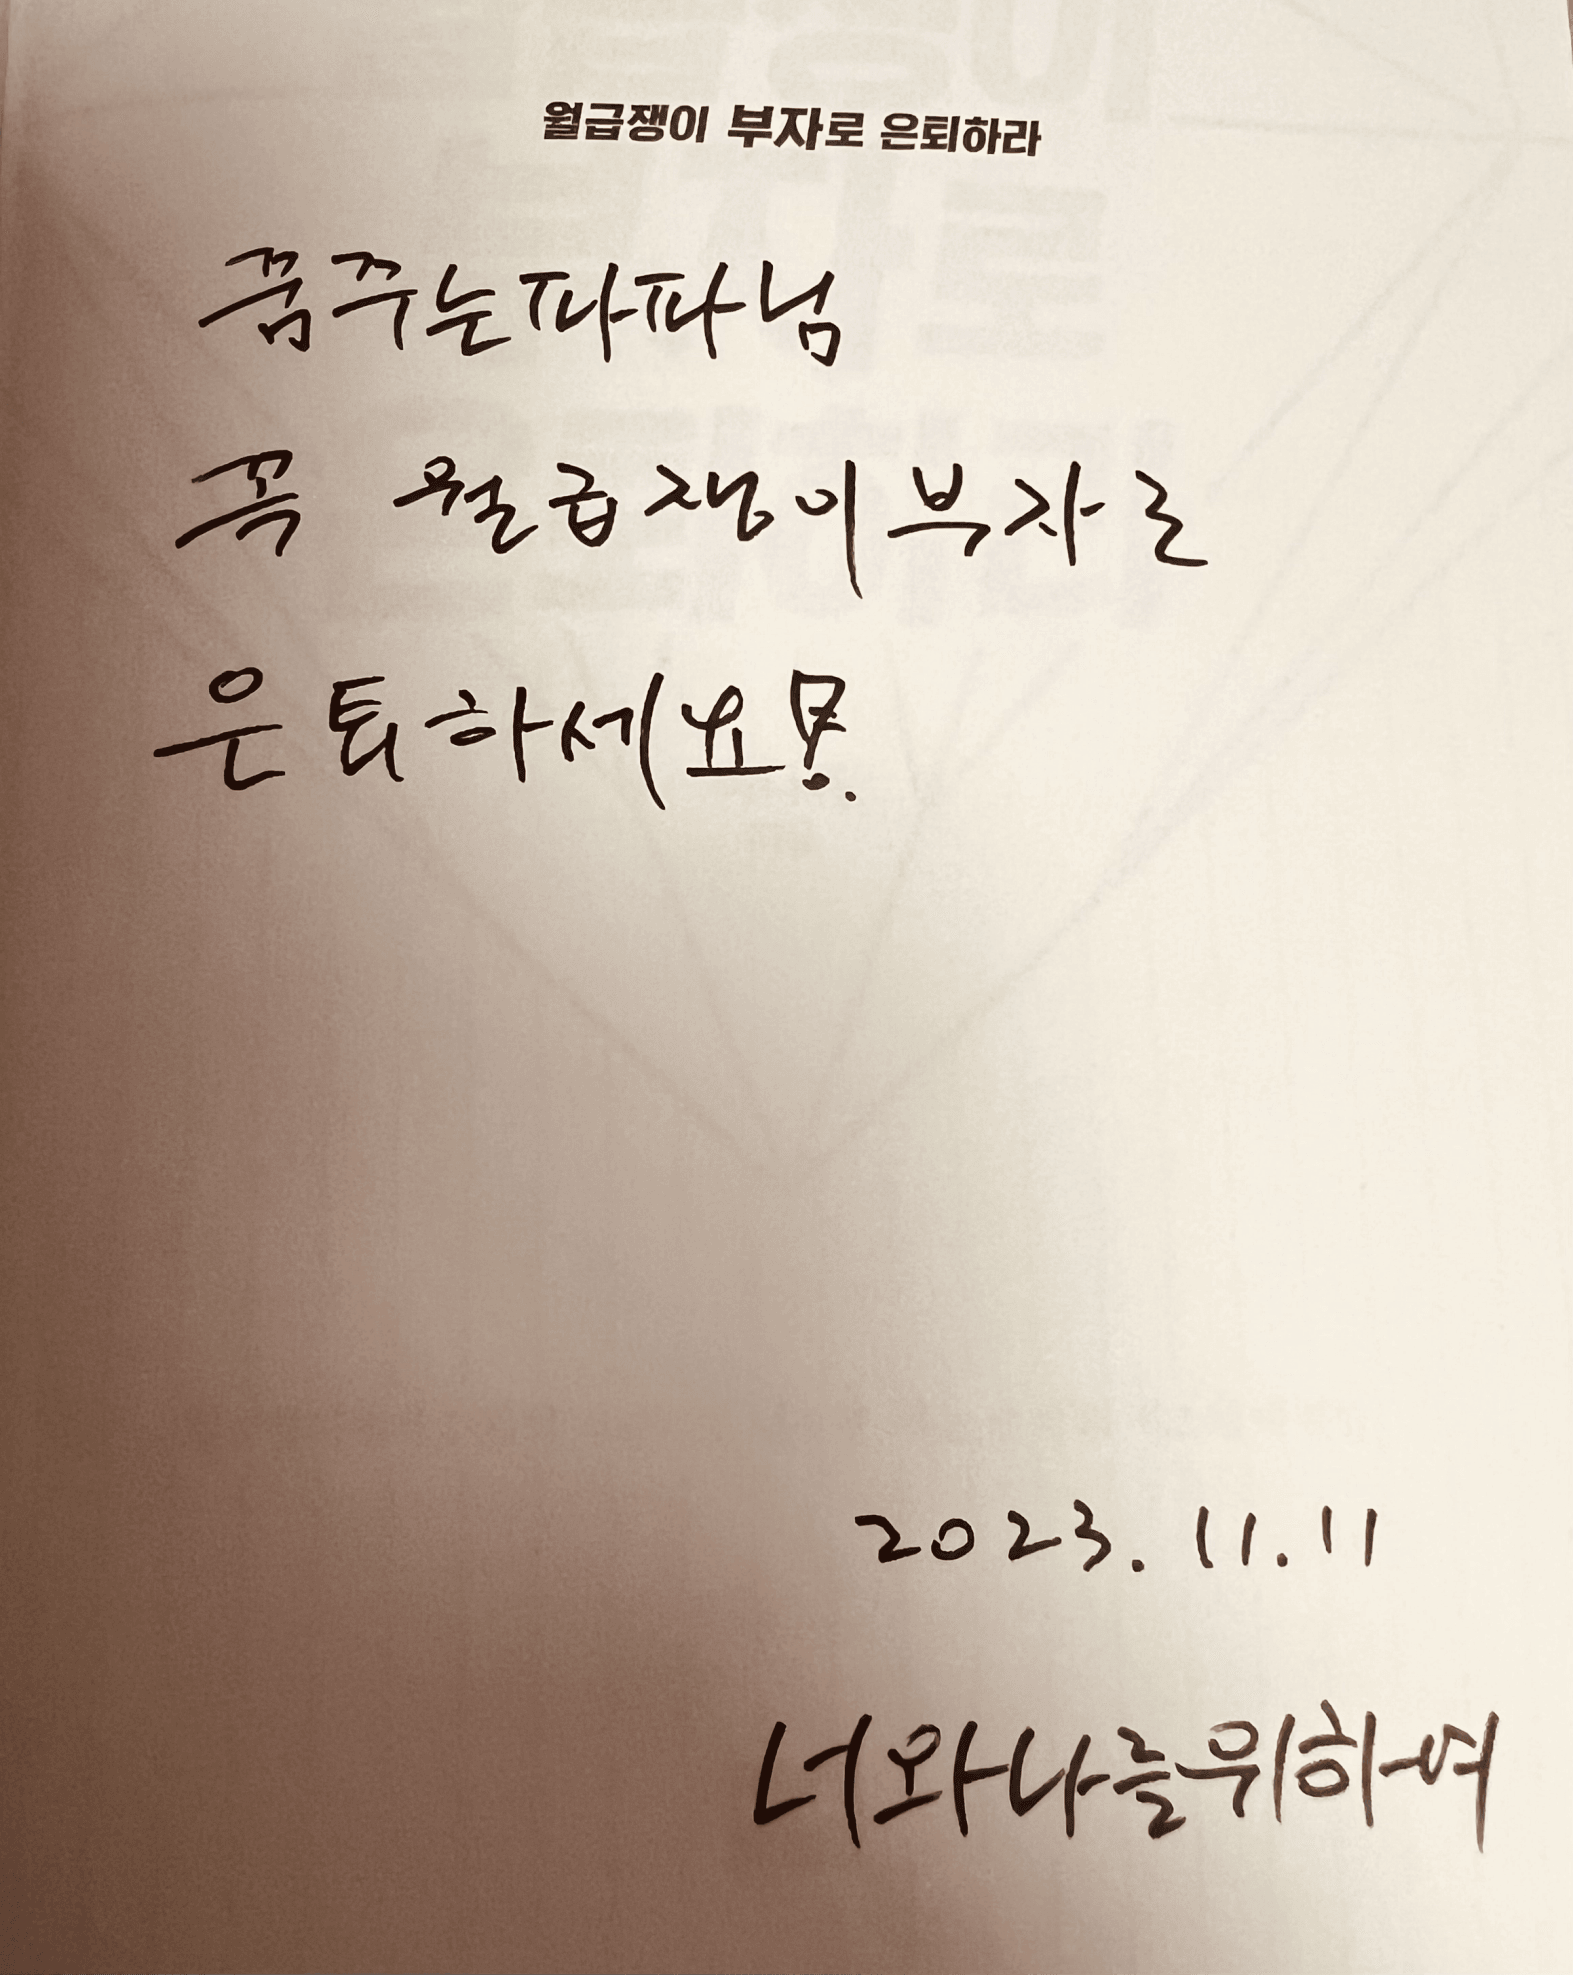 월급쟁이 부자로 은퇴하라
꿈꾸는파파님
꼭 월급쟁이부자로
은퇴하세요!
2023.11.11
너와나를위하여